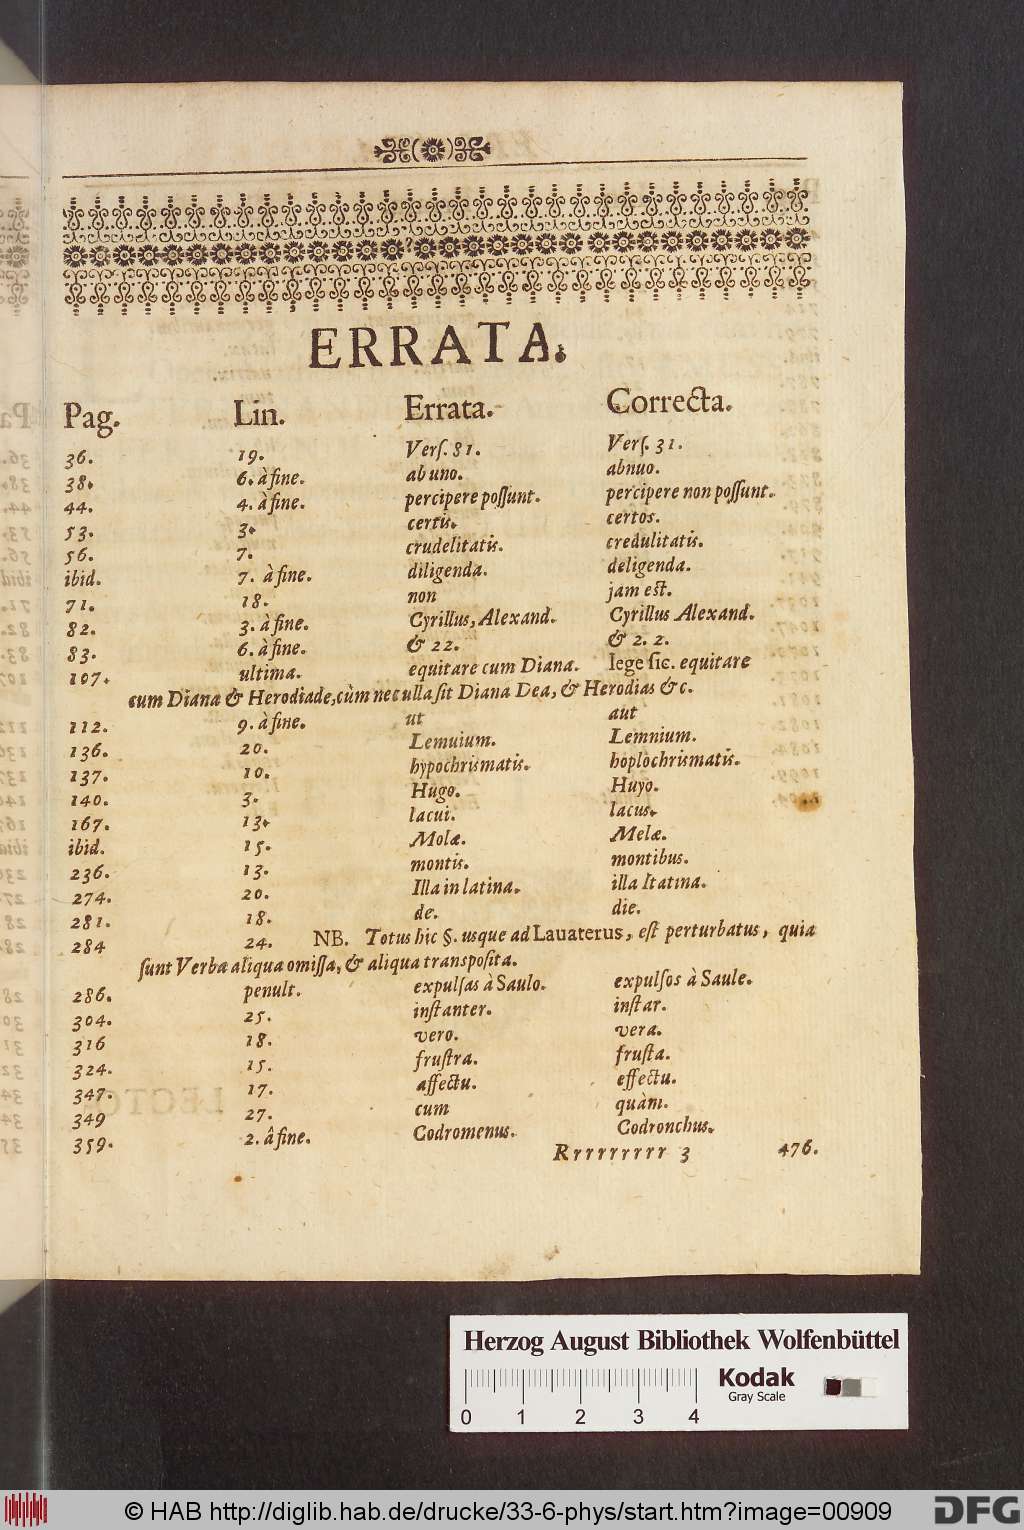 ERRATA.
Pag. Lin. Errata. Correcta.
36. 19. Verſ. 81. Verſ. 31.
38. 6. à fine. ab uno. abnuo.
44. 4. à fine. percipere poſſunt. percipere non poſſunt.
53. 3. certis. certos.
56. 7. crudelitatis. credulitatis.
ibid. 7. à fine. diligenda. deligenda.
71. 18. non jam est.
82. 3. à fine. Cyrillus, Alexand. Cyrillus Alexand.
83. 6. à fine. & 22. & 2. 2.
107. ultima. equitare cum Diana. lege ſic. equitare
cum Diana & Herodiade, cùm nec ulla ſit Diana Dea, & Herodias &c.
112. 9. à fine. ut aut
136. 20. Lemuium. Lemnium.
137. 10. hypochrismatis. hoplochrismatis.
140. 3. Hugo. Huyo.
167. 13. lacui. lacus.
ibid. 15. Molæ. Melæ.
236. 13. montis. montibus.
274. 20. Illa in latina. illa Itatina.
281. 18. de. die.
284 24. NB. Totus hic §. usque ad Lavaterus, eſt perturbatus, quia
ſunt Verba aliqua omiſſa, & aliqua transpoſita.
286. penult. expulſas à Saulo. expulſos à Saule.
304. 25. inſtanter. inſtar.
316 18. vero. vera.
324. 15. fruſtra. fruſta.
347. 17. affectu. effectu.
349 27. cum quàm.
359. 2. â fine. Codromenus. Codronchus.
Rrrrrrrrr 3 476.
Herzog August Bibliothek Wolfenbüttel
Kodak
Gray Scale
0 1 2 3 4
© HAB http://diglib.hab.de/drucke/33-6-phys/start.htm?image=00909
DFG